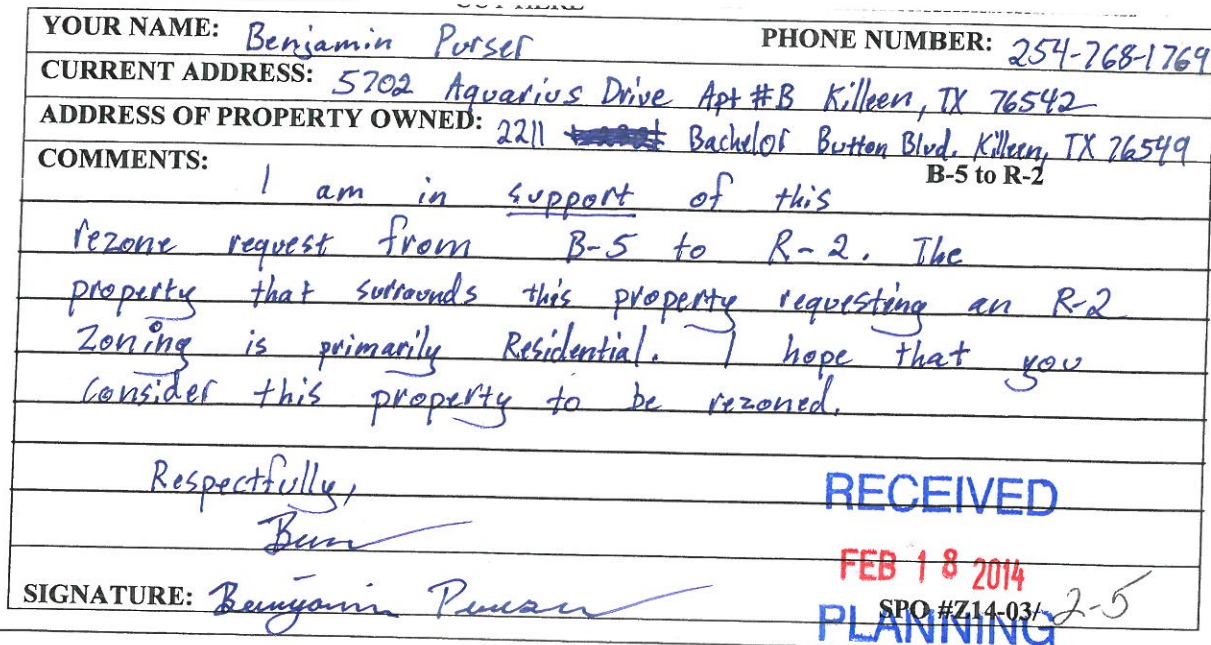 CUT HERE
YOUR NAME: Benjamin Purser PHONE NUMBER: 254-768-1769
CURRENT ADDRESS: 5702 Aquarius Drive Apt #B Killeen, TX 76542
ADDRESS OF PROPERTY OWNED: 2211 Bachelor Button Blvd. Killeen, TX 76549
COMMENTS: B-5 to R-2
I am in support of this
rezone request from B-5 to R-2. The
property that surrounds this property requesting an R-2
Zoning is primarily Residential. I hope that you
consider this property to be rezoned.
Respectfully,
Ben
RECEIVED
FEB 18 2014
SIGNATURE: Benjamin Purser SPO #Z14-03/ 2-5
PLANNING